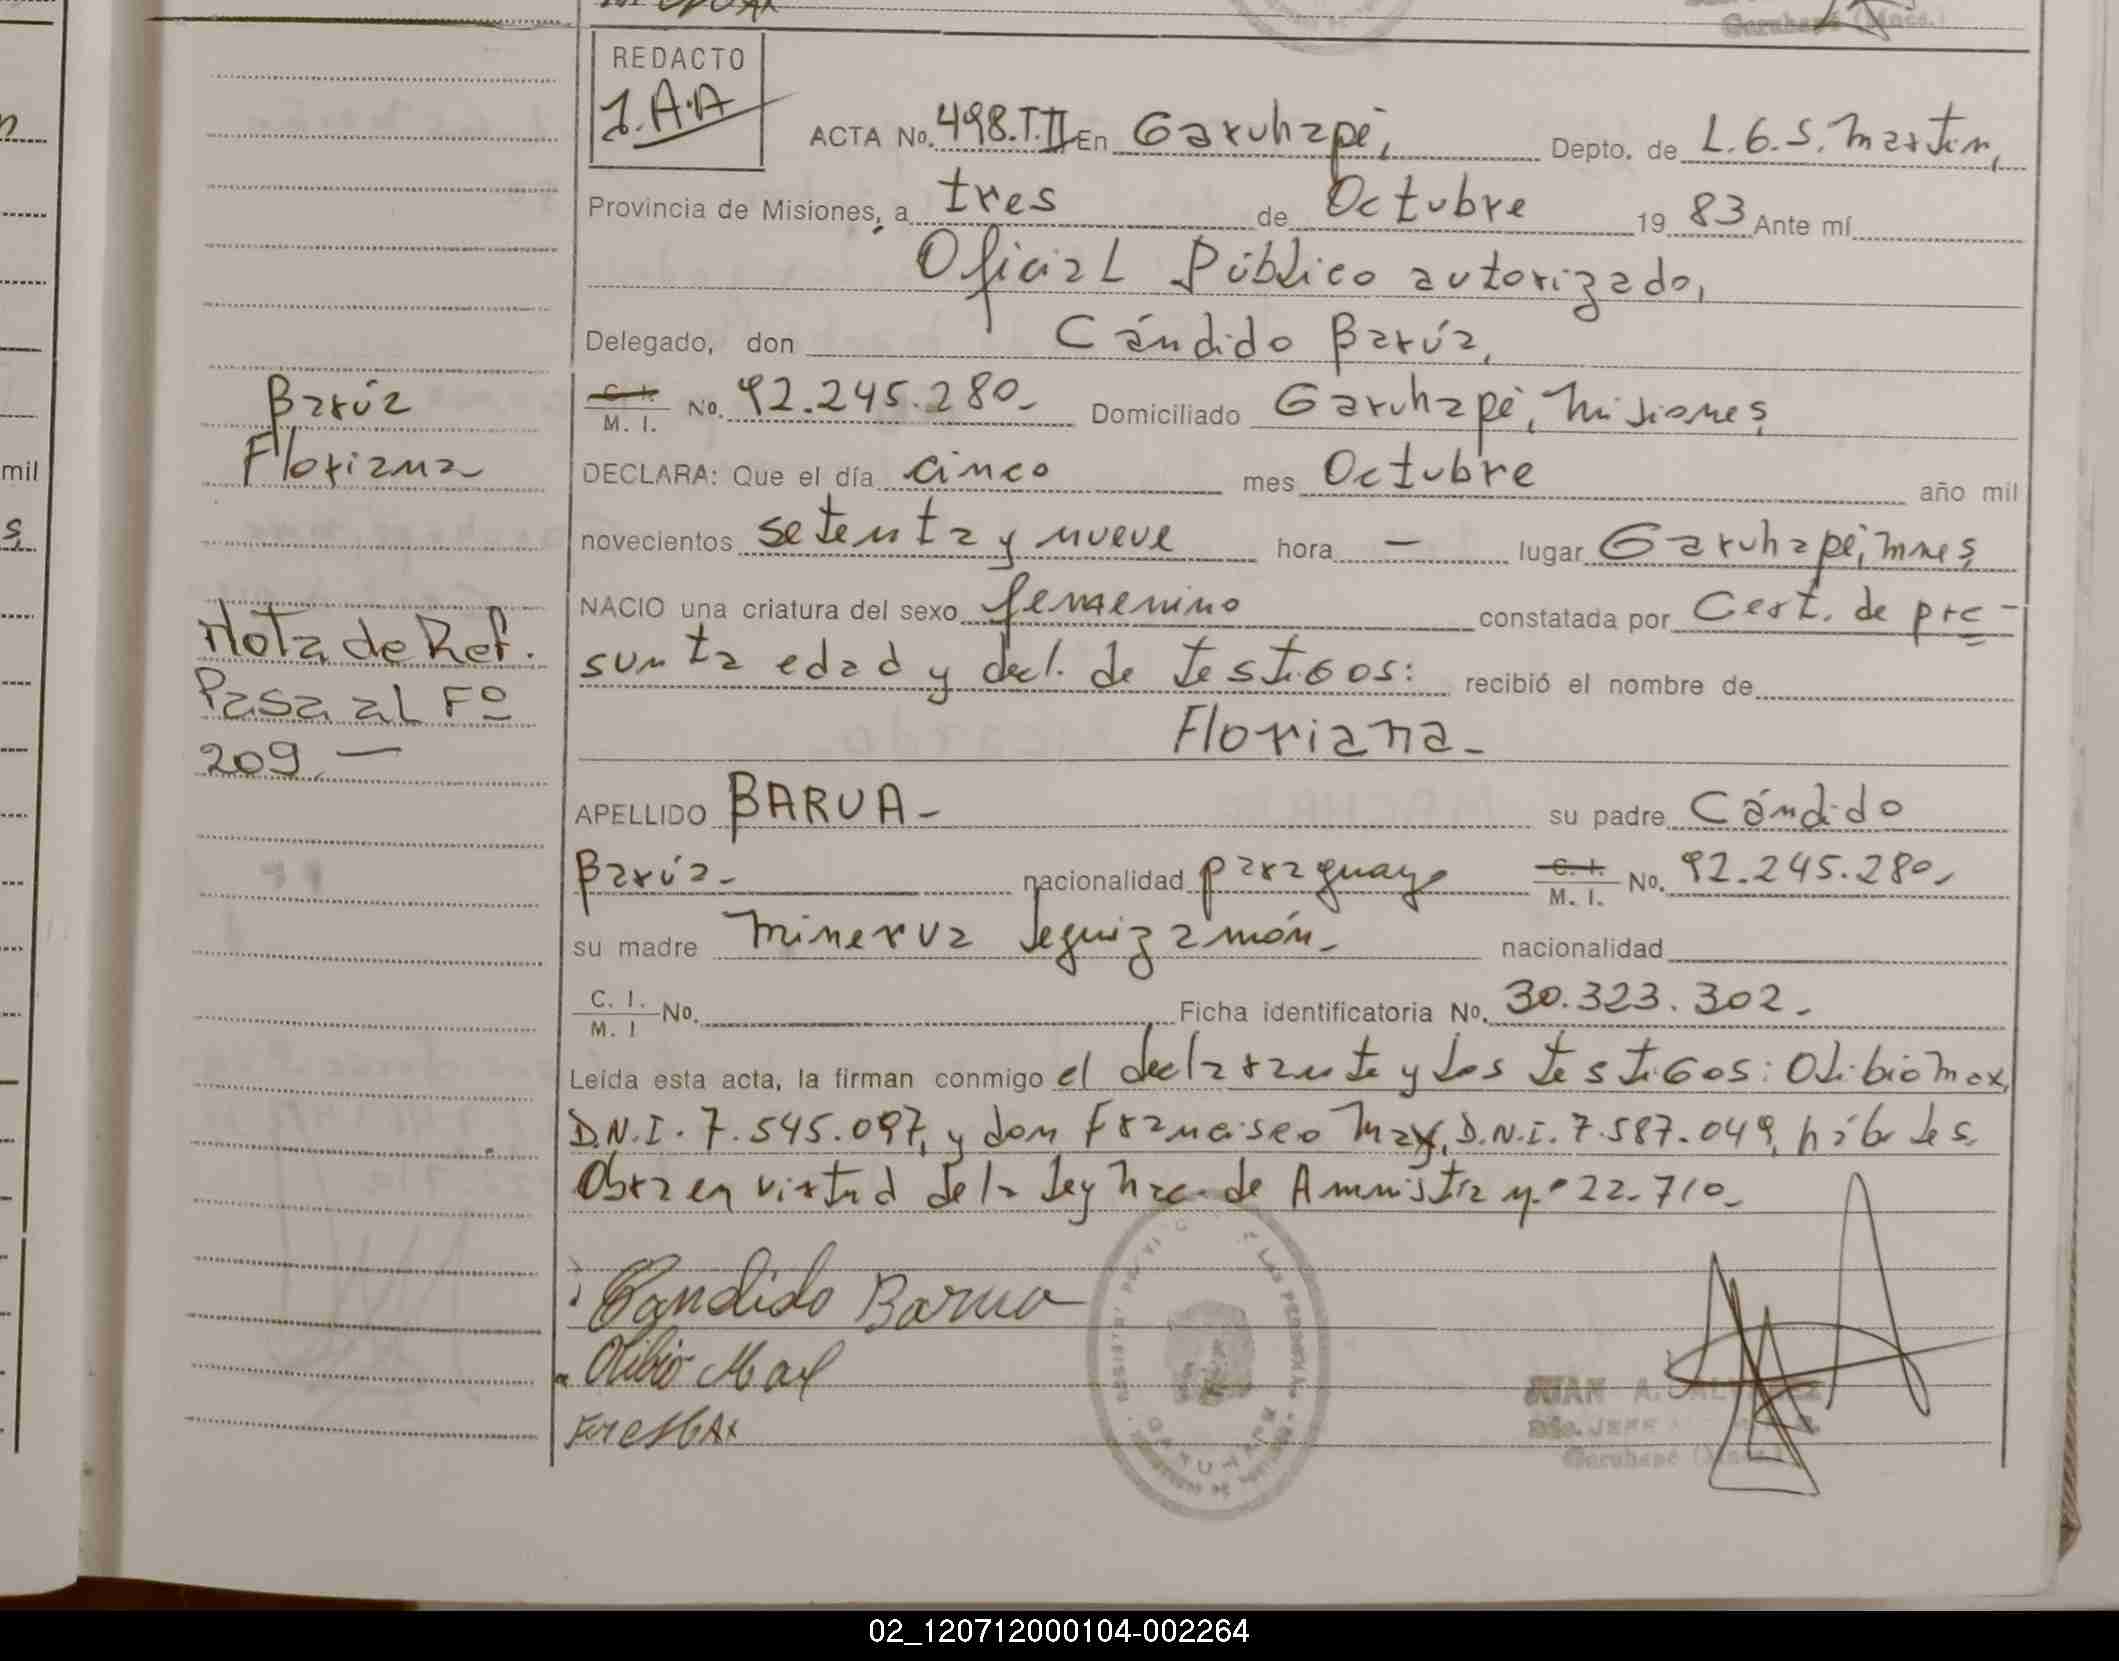 REDACTO
J.A.A
ACTA No. 498.T.II En Garuhapé, Depto. de L.G.S. Martin,
Provincia de Misiones, a tres de Octubre 19 83 Ante mí
Oficial Público autorizado,
Delegado, don Cándido Barúa,
C. I. M. I. No. 92.245.280- Domiciliado Garuhapé, Misiones,
DECLARA: Que el día cinco mes Octubre año mil
novecientos setenta y nueve hora — lugar Garuhapé, Mnes,
NACIO una criatura del sexo femenino constatada por Cert. de pre-
sunta edad y decl. de testigos: recibió el nombre de
Floriana-
APELLIDO BARUA- su padre Cándido
Barúa- nacionalidad paraguayo C. I. M. I. No. 92.245.280-
su madre Minerva Leguizamón- nacionalidad
C. I. M. I No. Ficha identificatoria No. 30.323.302-
Leída esta acta, la firman conmigo el declarante y los testigos: Olibio Max,
D.N.I. 7.545.097, y don Francisco Max, D.N.I. 7.587.049, hábiles.
Obra en virtud de la Ley Nac. de Amnistía n.º 22.710-
Candido Barua
Olibio Max
Barúa
Floriana
Nota de Ref.
Pasa al Fº
209.—
mil
JUAN A.
Garuhapé (Mnes.)
02_120712000104-002264